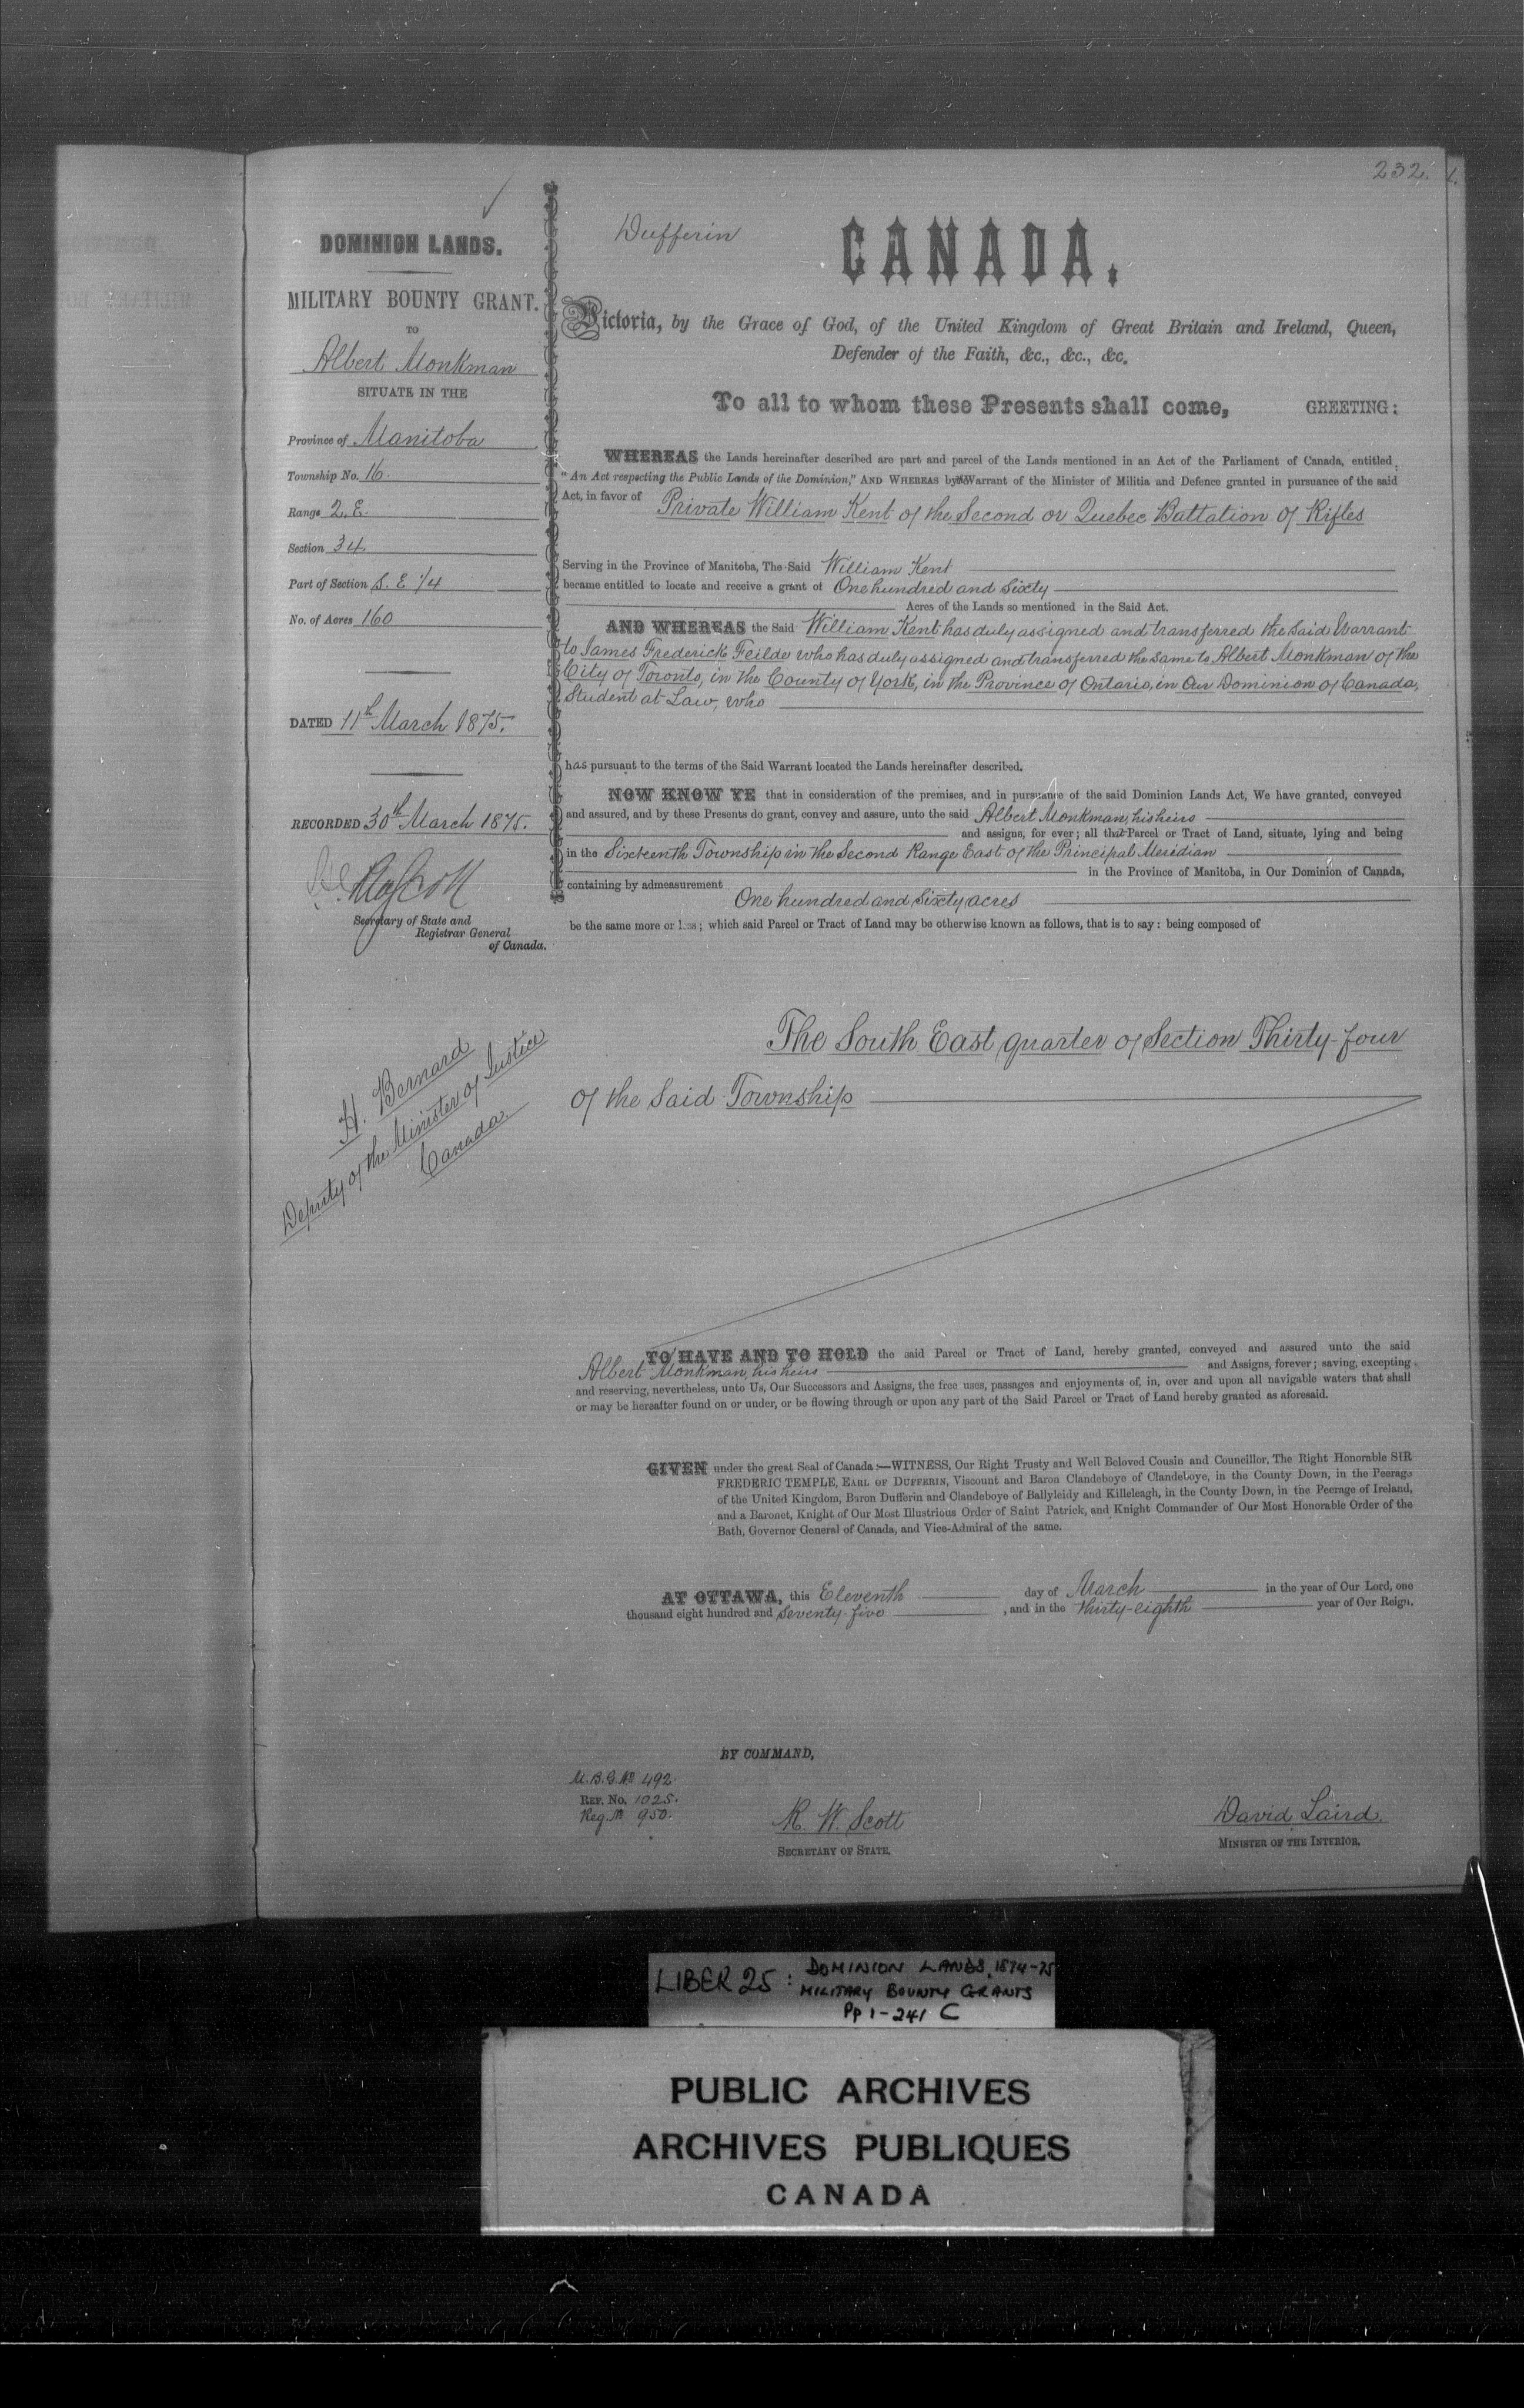 232.
DOMINION LANDS.
MILITARY BOUNTY GRANT.
TO
Albert Monkman
SITUATE IN THE
Province of Manitoba
Township No. 16.
Range 2. E.
Section 34.
Part of Section S. E 1/4
No. of Acres 160
DATED 11th March 1875.
RECORDED 30th March 1875.
Secretary of State and
Registrar General
of Canada.
H. Bernard
Deputy of the Minister of Justice
Canada
Dufferin
CANADA.
Victoria, by the Grace of God, of the United Kingdom of Great Britain and Ireland, Queen,
Defender of the Faith, &c., &c., &c.
To all to whom these Presents shall come, GREETING:
WHEREAS the Lands hereinafter described are part and parcel of the Lands mentioned in an Act of the Parliament of Canada, entitled
"An Act respecting the Public Lands of the Dominion," AND WHEREAS by Warrant of the Minister of Militia and Defence granted in pursuance of the said
Act, in favor of Private William Kent of the Second or Quebec Battation of Rifles
Serving in the Province of Manitoba, The Said William Kent
became entitled to locate and receive a grant of One hundred and Sixty
Acres of the Lands so mentioned in the Said Act.
AND WHEREAS the Said William Kent has duly assigned and transferred the said Warrant
to James Frederick Feilde who has duly assigned and transferred the same to Albert Monkman of the
City of Toronto, in the County of York, in the Province of Ontario, in Our Dominion of Canada,
Student at Law, who
has pursuant to the terms of the Said Warrant located the Lands hereinafter described.
NOW KNOW YE that in consideration of the premises, and in pursuance of the said Dominion Lands Act, We have granted, conveyed
and assured, and by these Presents do grant, convey and assure, unto the said Albert Monkman, his heirs
and assigns, for ever; all that Parcel or Tract of Land, situate, lying and being
in the Sixteenth Township in the Second Range East of the Principal Meridian
in the Province of Manitoba, in Our Dominion of Canada,
containing by admeasurement
One hundred and Sixty acres
be the same more or less; which said Parcel or Tract of Land may be otherwise known as follows, that is to say: being composed of
The South East quarter of Section Thirty-four
of the Said Township
TO HAVE AND TO HOLD the said Parcel or Tract of Land, hereby granted, conveyed and assured unto the said
Albert Monkman, his heirs and Assigns, forever; saving, excepting
and reserving, nevertheless, unto Us, Our Successors and Assigns, the free uses, passages and enjoyments of, in, over and upon all navigable waters that shall
or may be hereafter found on or under, or be flowing through or upon any part of the Said Parcel or Tract of Land hereby granted as aforesaid.
GIVEN under the great Seal of Canada:—WITNESS, Our Right Trusty and Well Beloved Cousin and Councillor, The Right Honorable SIR
FREDERIC TEMPLE, EARL OF DUFFERIN, Viscount and Baron Clandeboye of Clandeboye, in the County Down, in the Peerage
of the United Kingdom, Baron Dufferin and Clandeboye of Ballyleidy and Killeleagh, in the County Down, in the Peerage of Ireland,
and a Baronet, Knight of Our Most Illustrious Order of Saint Patrick, and Knight Commander of Our Most Honorable Order of the
Bath, Governor General of Canada, and Vice-Admiral of the same.
AT OTTAWA, this Eleventh day of March in the year of Our Lord, one
thousand eight hundred and Seventy-five, and in the Thirty-eighth year of Our Reign.
BY COMMAND,
M.B.G. No 492.
REF. No. 1025.
Reg. No 950.
R. W. Scott
SECRETARY OF STATE.
David Laird.
MINISTER OF THE INTERIOR.
LIBER 25: DOMINION LANDS, 1874-75
MILITARY BOUNTY GRANTS
Pp 1-241 C
PUBLIC ARCHIVES
ARCHIVES PUBLIQUES
CANADA